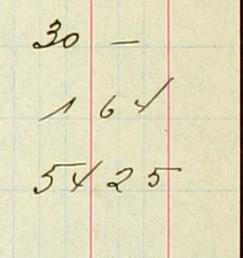 30 —
1 64
54 25